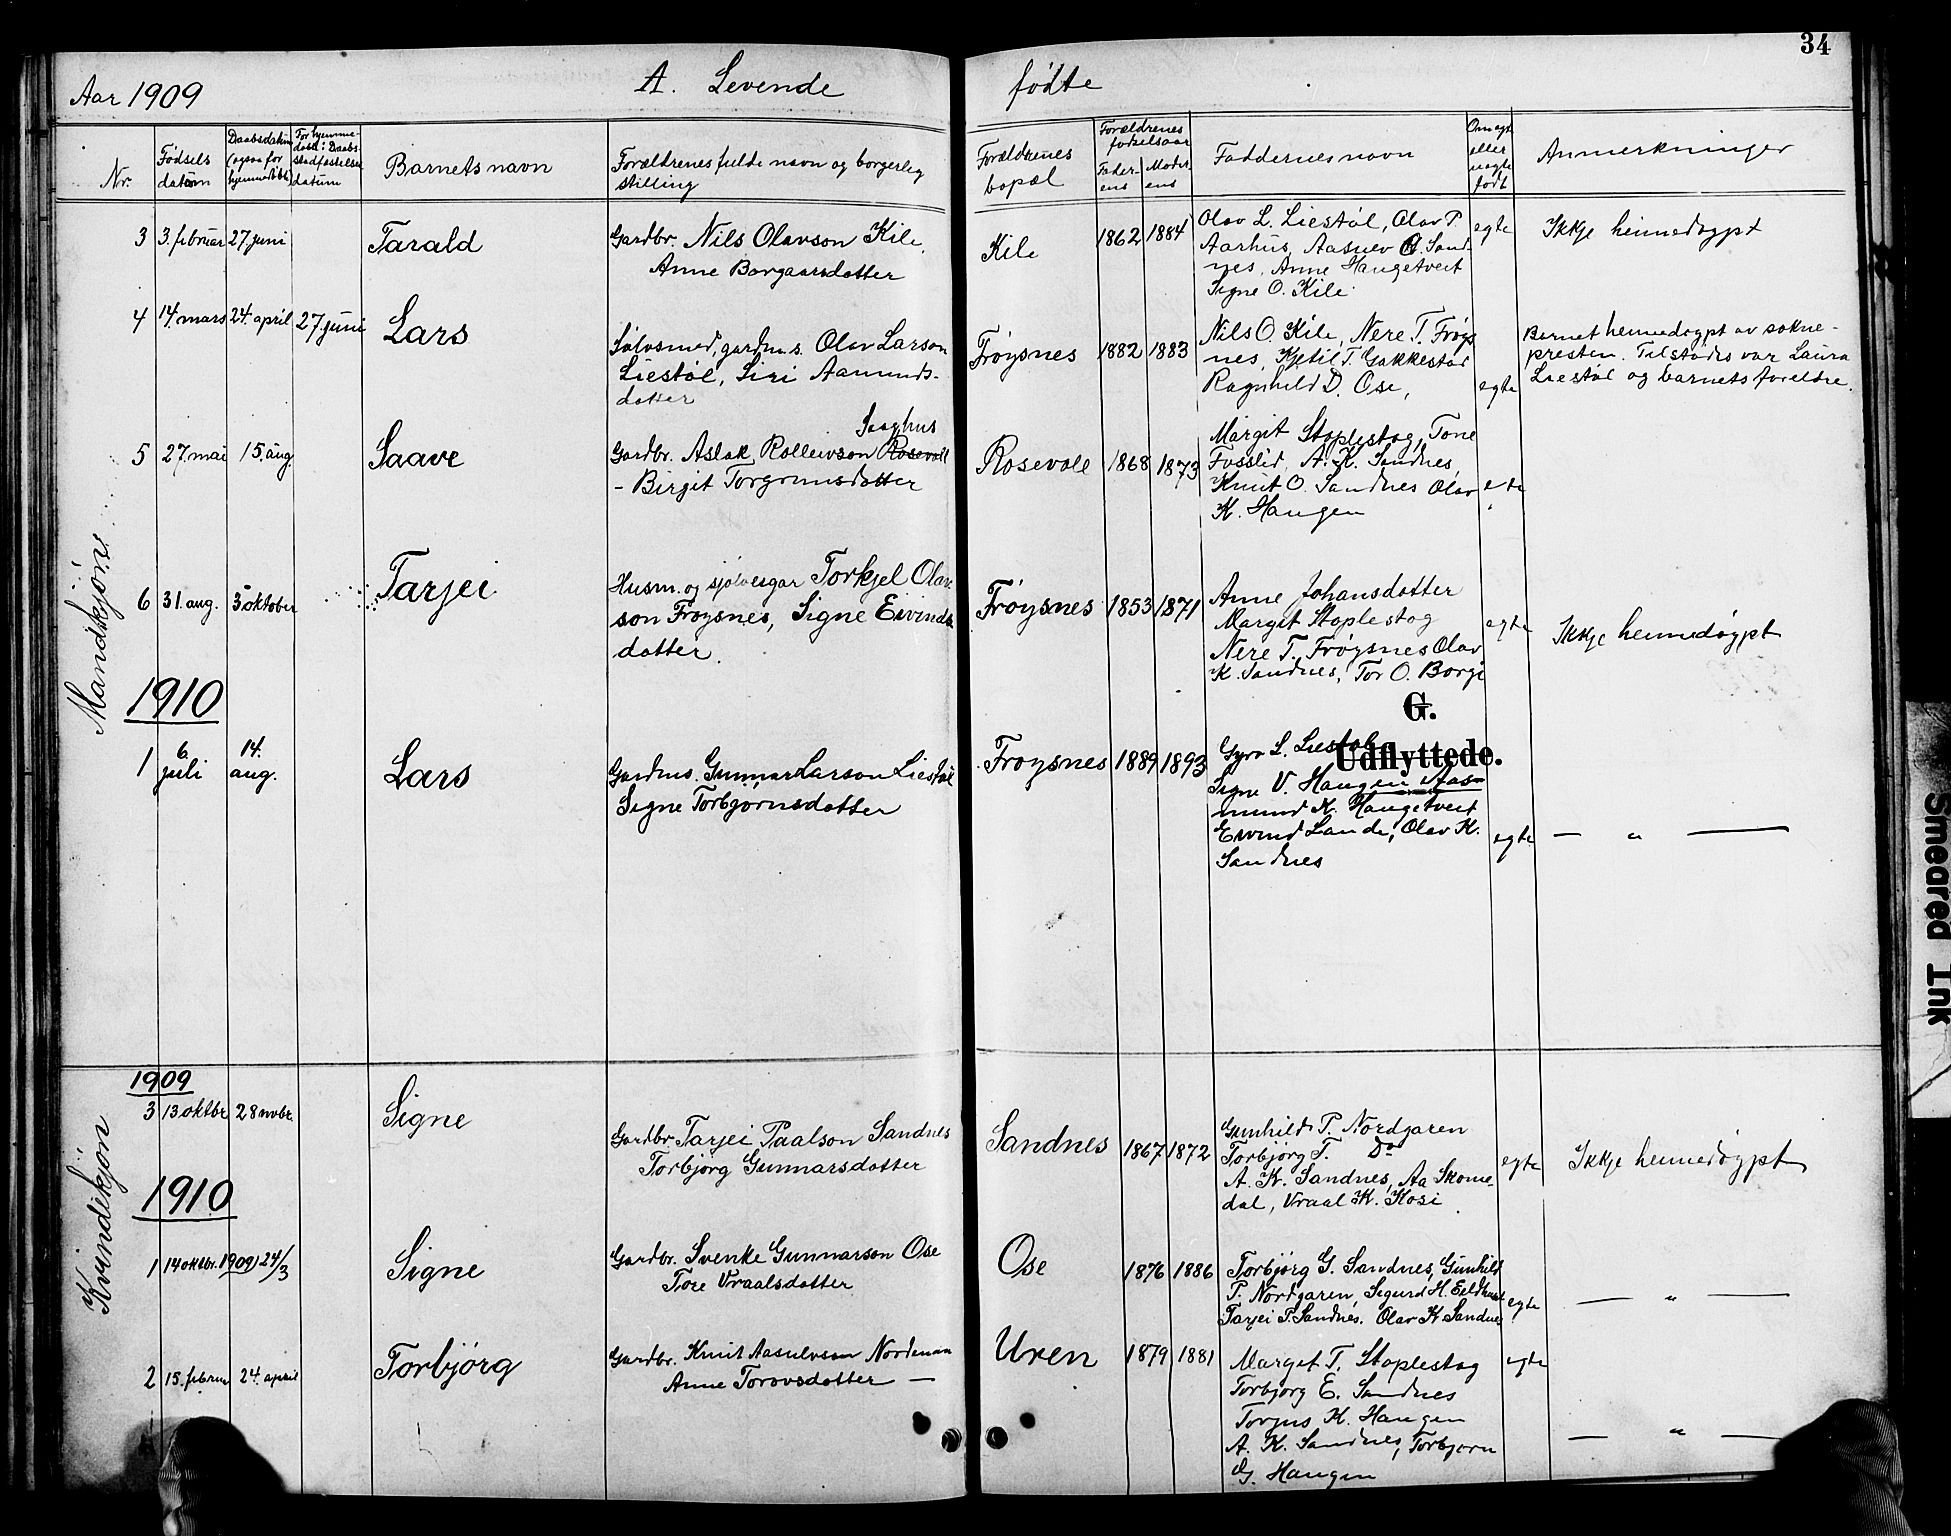 34
Aar 1909
A. Levende fødte
Nr.
Fødsels
datum
Daabsdatum
(ogsaa for
hjemmedøbt)
For hjemme-
døbt: Daabs-
stadfæstelses
datum
Barnets navn
Forældrenes fulde navn og borgerlig
stilling
Forældrenes
bopæl
Forældrenes
fødselsaar
Fader-
ens
Moder-
ens
Faddernes navn
Om egte
eller
uegte
født
Anmerkninger
Mandkjøn
3 3. februar 27. juni Tarald
Gardbr. Nils Olavson Kile,
Anne Borgaarsdotter
Kile 1862 1884
Olav L. Liestøl, Olav P.
Aarhus, Aasnev G. Sand-
nes, Anne Haugetveit
Signe O. Kile
egte
Ikkje heimedøypt
4 14. mars 24. april 27. juni Lars
Sølvsmed, gardm.s. Olav Larson
Liestøl, Siri Aamunds-
dotter
Frøysnes 1882 1883
Nils O. Kile, Nere T. Frøys
nes, Kjetil T. Gakkestad
Ragnhild D. Ose,
egte
Barnet heimedøypt av sokne-
presten. Tilstades var Laura
Liestøl og barnets foreldre.
5 27. mai 15. aug. Saave
Saaghus
Gardbr. Aslak Rolleivson Rosevoll
- Birgit Torgrimsdotter
Rosevoll 1868 1873
Margit Stoplestog, Tone
Fosslid, A. K. Sandnes,
Knut O. Sandnes Olav
K. Haugen
egte
6 31. aug. 3 oktober Tarjei
Husm. og sjølveigar Torkjel Olav-
son Frøysnes, Signe Eivinds
dotter.
Frøysnes 1853 1871
Anne Johansdotter
Margit Stoplestog
Nere T. Frøysnes Olav
K. Sandnes, Tor O. Borgi
egte
Ikkje heimedøypt
1910
G.
Udflyttede.
1 6 juli 14. aug. Lars
Gardm.s. Gunnar Larson Liestøl
Signe Torbjørnsdotter
Frøysnes 1889 1893
Gyro L. Liestøl
Signe V. Haugen Aas-
mund K. Haugetveit
Eivind Lande, Olav K.
Sandnes
egte
— " —
Kvindekjøn
1909
3 13 oktbr 28 novbr. Signe
Gardbr. Tarjei Paalson Sandnes
Torbjørg Gunnarsdotter
Sandnes 1867 1872
Gunhild P. Nordgaren
Torbjørg T. Do
A. K. Sandnes, Aa Skome-
dal, Vraal K. Kosi
egte
Ikkje heimedøypt
1910
1 14 oktbr. 1909 24/3 Signe
Gardbr. Svenke Gunnarson Ose
Tore Vraalsdotter
Ose 1876 1886
Torbjørg G. Sandnes, Gunhild
P. Nordgaren, Sigurd H.
Tarjei P. Sandnes. Olav K Sandnes
egte
— " —
2 15. februar 24. april Torbjørg
Gardbr. Knut Aasulvson Nordenaa
Anne Torovsdotter —
Uren 1879 1881
Margit T. Stoplestog
Torbjørg E. Sandnes
Torjus K. Haugen
A. K. Sandnes, Torbjørn
G. Haugen
egte
— " —
Smeared Ink